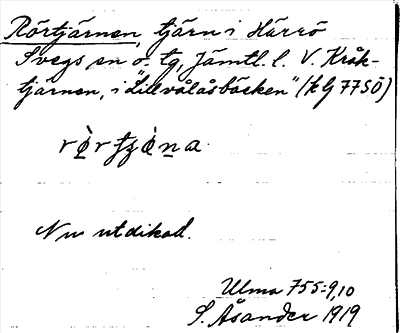 Rörtjärnen, tjärn i Härrö
Svegs sn o. tg, Jämtl. l. V. Kråk-
tjärnen, i "Lillvålåsbäcken" (kg 77SÖ)
Nu utdikad.
Ulma 755:9,10
S. Åsander 1919